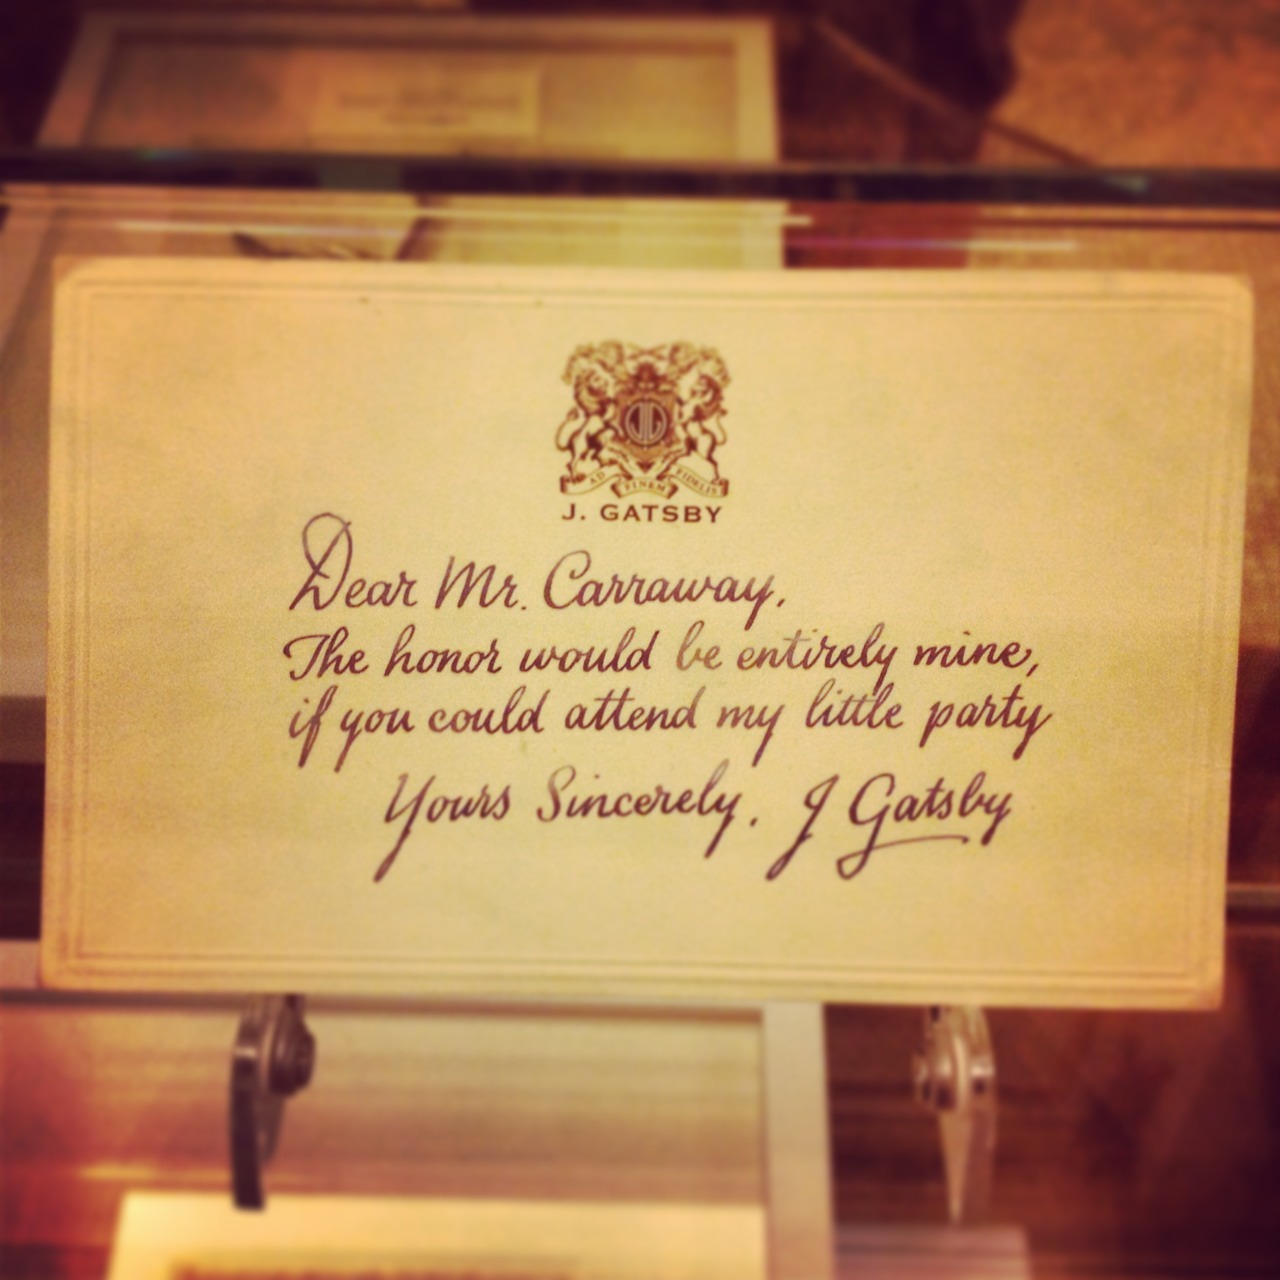 AD FINEM FIDELIS
J. GATSBY
Dear Mr. Carraway,
The honor would be entirely mine,
if you could attend my little party
Yours Sincerely, J Gatsby